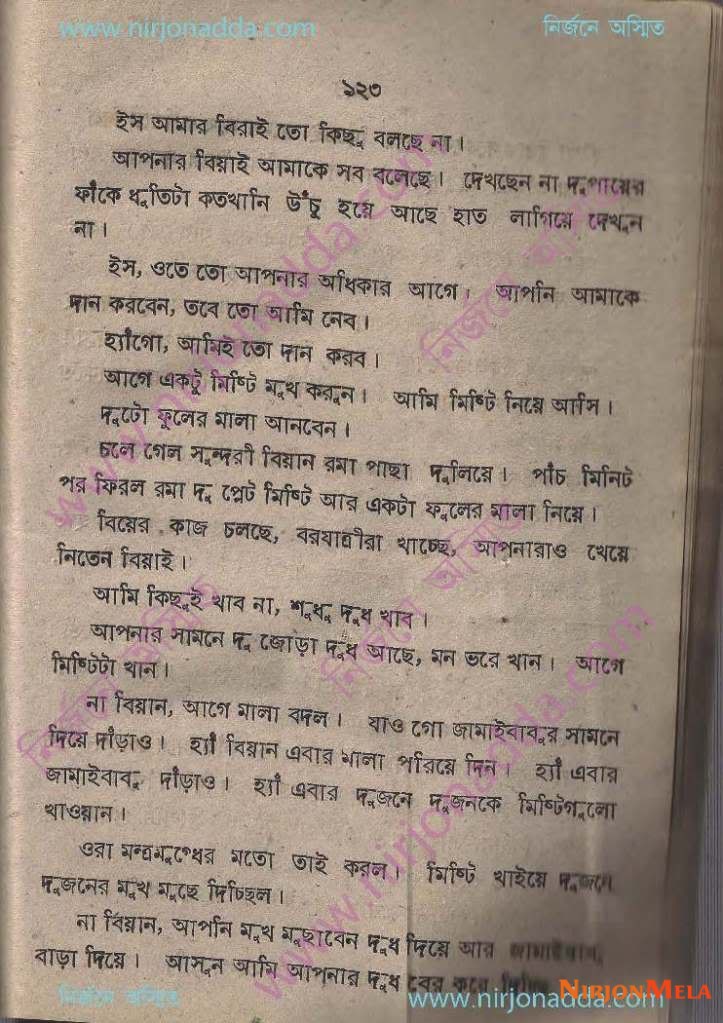 www.nirjonadda.com নির্জনে অস্মিত
১২৩
ইস আমার বিয়াই তো কিছু বলছে না।
আপনার বিয়াই আমাকে সব বলেছে। দেখছেন না দুপায়ের
ফাঁকে ধুতিটা কতখানি উঁচু হয়ে আছে হাত লাগিয়ে দেখুন
না।
ইস, ওতে তো আপনার অধিকার আগে। আপনি আমাকে
দান করবেন, তবে তো আমি নেব।
হ্যাঁগো, আমিই তো দান করব।
আগে একটু মিষ্টি মুখ করুন। আমি মিষ্টি নিয়ে আসি।
দুটো ফুলের মালা আনবেন।
চলে গেল সুন্দরী বিয়ান রমা পাছা দুলিয়ে। পাঁচ মিনিট
পর ফিরল রমা দু প্লেট মিষ্টি আর একটা ফুলের মালা নিয়ে।
বিয়ের কাজ চলছে, বরযাত্রীরা খাচ্ছে, আপনারাও খেয়ে
নিতেন বিয়াই।
আমি কিছুই খাব না, শুধু দুধ খাব।
আপনার সামনে দু জোড়া দুধ আছে, মন ভরে খান। আগে
মিষ্টিটা খান।
না বিয়ান, আগে মালা বদল। যাও গো জামাইবাবুর সামনে
গিয়ে দাঁড়াও। হ্যাঁ বিয়ান এবার মালা পরিয়ে দিন। হ্যাঁ এবার
জামাইবাবু দাঁড়াও। হ্যাঁ এবার দুজনে দুজনকে মিষ্টিগুলো
খাওয়ান।
ওরা মন্ত্রমুগ্ধের মতো তাই করল। মিষ্টি খাইয়ে দুজনে
দুজনের মুখ মুছে দিচ্ছিল।
না বিয়ান, আপনি মুখ মুছাবেন দুধ দিয়ে আর জামাইবাবু
বাড়া দিয়ে। আসুন আমি আপনার দুধ বের করে
নির্জনে অস্মিত www.nirjonadda.com NIRJONMELA
www.nirjonadda.com নির্জনে অস্মিত
নির্জনে অস্মিত www.nirjonadda.com